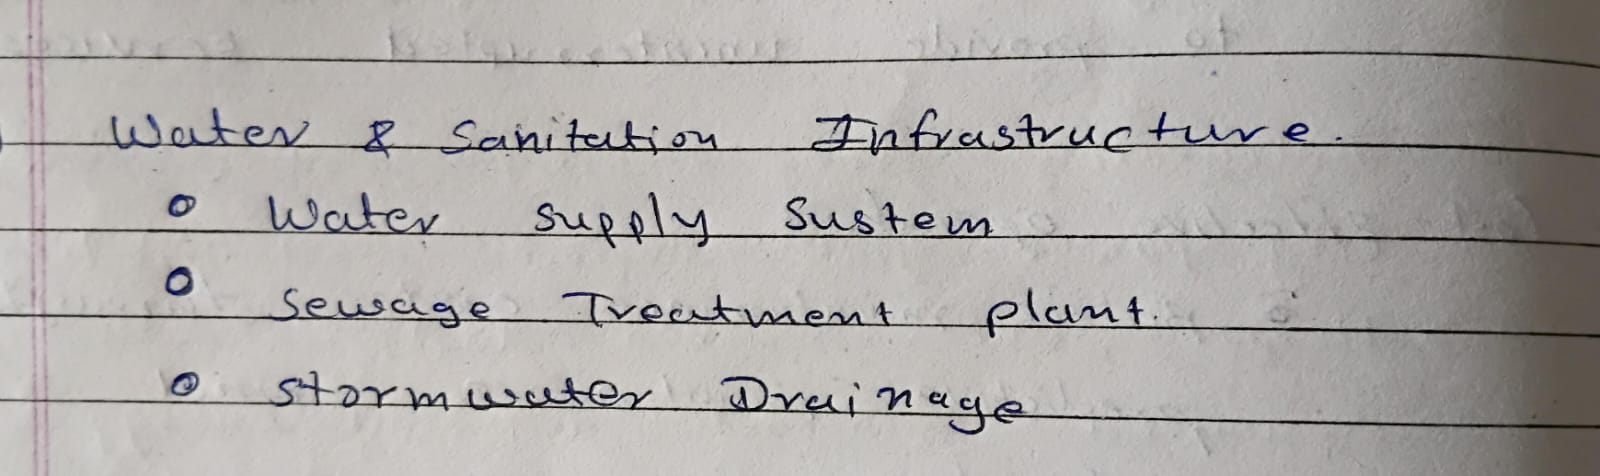 Water & Sanitation Infrastructure.
o Water supply Sustem
o Sewage Treatment plant.
o Stormwater Drainage